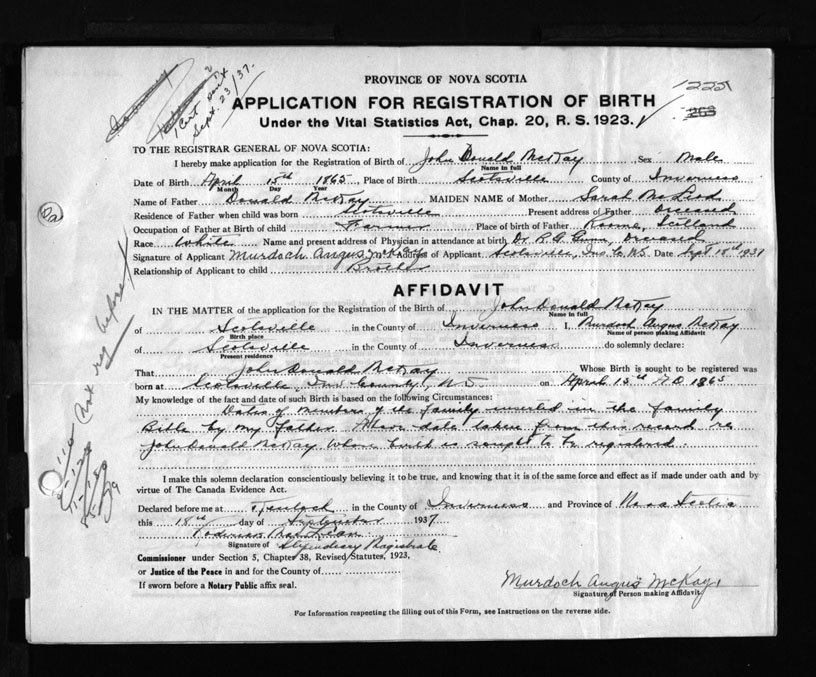 1 Cert. sent
Sept. 23/37.
1225
263
PROVINCE OF NOVA SCOTIA
APPLICATION FOR REGISTRATION OF BIRTH
Under the Vital Statistics Act, Chap. 20, R. S. 1923.
TO THE REGISTRAR GENERAL OF NOVA SCOTIA:
I hereby make application for the Registration of Birth of John Donald McKay Sex Male
Name in full
Date of Birth April 15th 1865 Place of Birth Scotsville County of Inverness
Month Day Year
Name of Father Donald McKay MAIDEN NAME of Mother Sarah McLeod
Residence of Father when child was born Scotsville Present address of Father Deceased
Occupation of Father at Birth of child Farmer Place of birth of Father Scotland
Race White Name and present address of Physician in attendance at birth Dr. Gunn, Deceased
Signature of Applicant Murdoch Angus McKay P.O. Address of Applicant Scotsville, Inv. Co. N.S. Date Sept 18th 1937
Relationship of Applicant to child Brother
AFFIDAVIT
IN THE MATTER of the application for the Registration of the Birth of John Donald McKay
Name in full
of Scotsville in the County of Inverness I, Murdoch Angus McKay
Birth place Name of person making Affidavit
of Scotsville in the County of Inverness do solemnly declare:
Present residence
That John Donald McKay Whose Birth is sought to be registered was
born at Scotsville, Inv County, N.S on April 15th A.D. 1865
My knowledge of the fact and date of such Birth is based on the following Circumstances:
Dates of members of the family inserted in the family
Bible by my father. Above date taken from this record re
John Donald McKay whose birth is sought to be registered
Not reg before
I make this solemn declaration conscientiously believing it to be true, and knowing that it is of the same force and effect as if made under oath and by
virtue of The Canada Evidence Act.
Declared before me at in the County of Inverness and Province of Nova Scotia
this 18th day of September 1937
Signature of Stipendiary Magistrate
Commissioner under Section 5, Chapter 38, Revised Statutes, 1923,
or Justice of the Peace in and for the County of
If sworn before a Notary Public affix seal.
Murdoch Angus McKay
Signature of Person making Affidavit
For Information respecting the filling out of this Form, see Instructions on the reverse side.